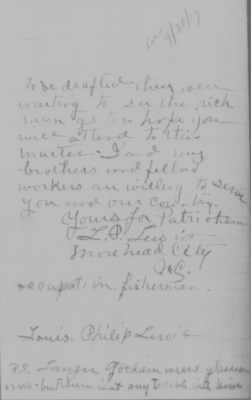 7/30/17
to be drafted they were
wanting to see the rich
man go to hope you
will attend to this
matter I and my
brothers and fellow
workers are willing to serve
you and our Country.
Yours for Patriotism
L. P. Lewis
Morehead City
N.C.
occupation fisherman.
Louis. Philip Lewis
P.S. Gorham wears glasses
now but there isn't any trouble with know